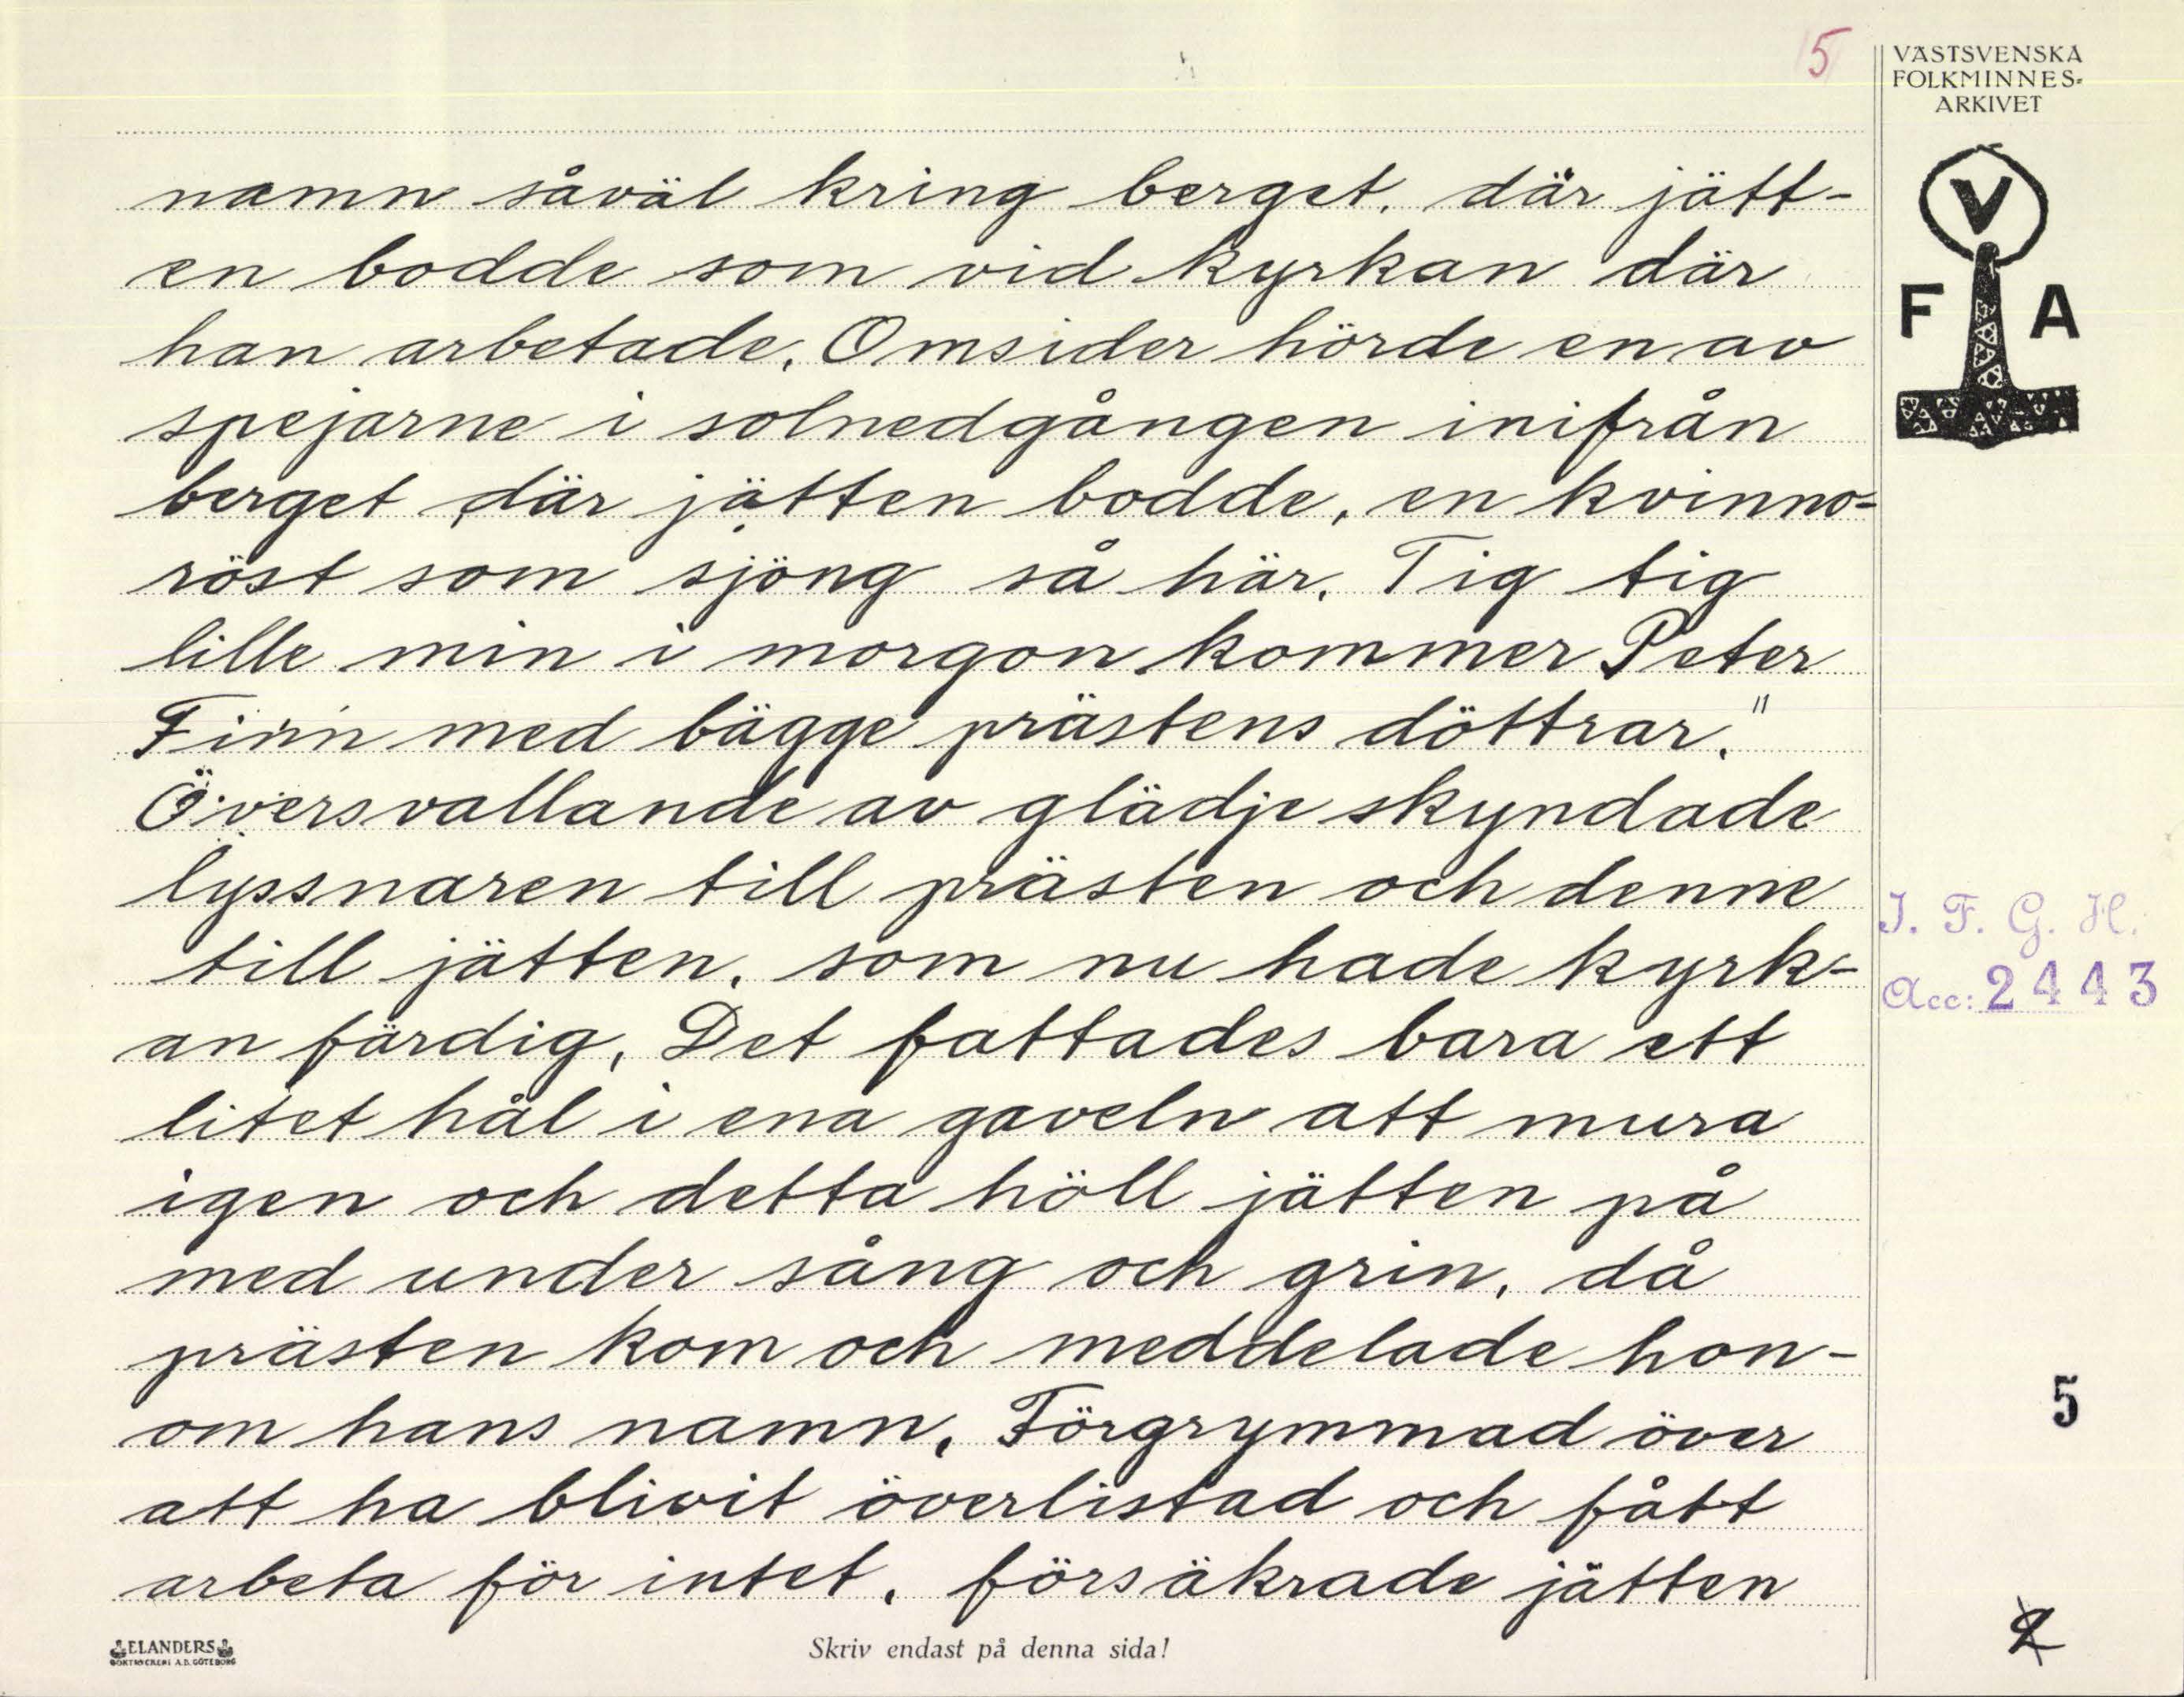 5
VÄSTSVENSKA
FOLKMINNES-
ARKIVET
V
F A
namn såväl kring berget, där jätt-
en bodde som vid kyrkan där
han arbetade. Omsider hörde en av
spejarne i solnedgången inifrån
berget där jätten bodde, en kvinno-
röst som sjöng så här. Tig tig
lille min i morgon kommer Peter
Finn med bägge prästens döttrar."
Översvallande av glädje skyndade
lyssnaren till prästen och denne
till jätten, som nu hade kyrk-
an färdig. Det fattades bara ett
litet hål i ena gaveln att mura
igen och detta höll jätten på
med under sång och grin, då
prästen kom och meddelade hon-
om hans namn. Förgrymmad över
att ha blivit överlistad och fått
arbeta för intet, försäkrade jätten
I. F. G. H.
Acc: 2443
5
2
ELANDERS
BOKTRYCKERI A.B. GÖTEBORG
Skriv endast på denna sida!